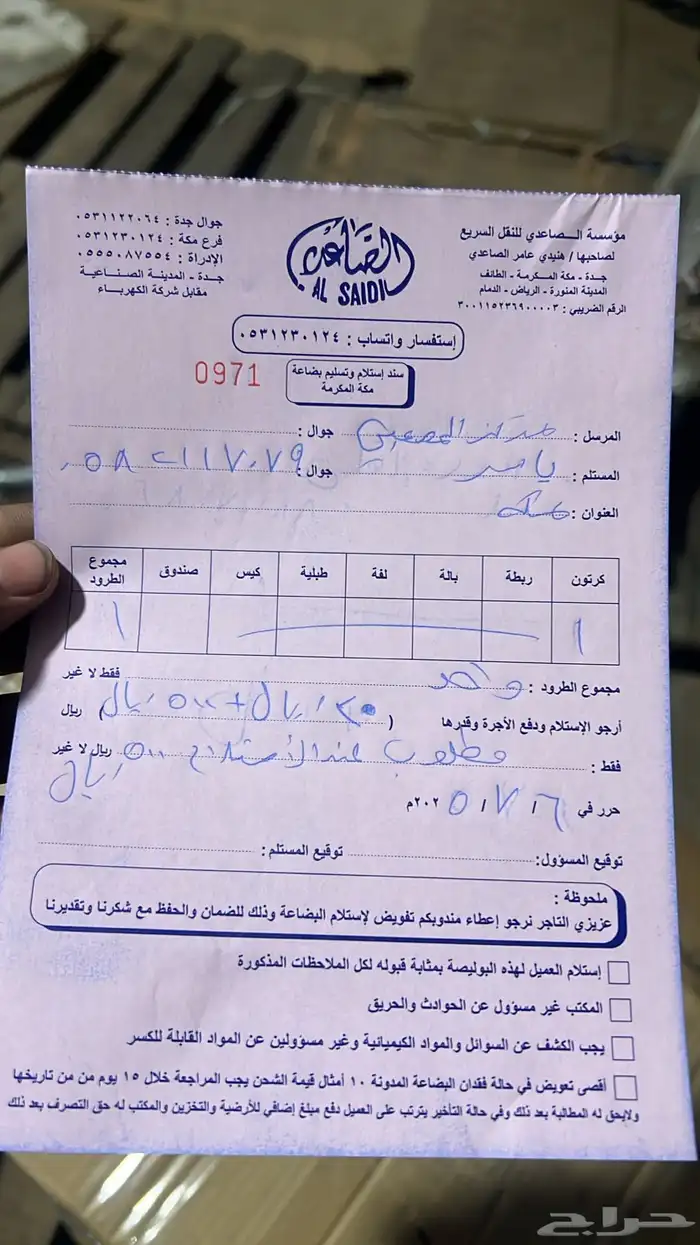 مؤسسة الصاعدي للنقل السريع
لصاحبها / هنيدي عامر الصاعدي
جدة - مكة المكرمة - الطائف
المدينة المنورة - الرياض - الدمام
الرقم الضريبي : ٣٠٠١١٥٢٣٦٩٠٠٠٠٣
الصاعدي
AL SAIDI
جوال جدة : ٠٥٣١١٢٢٠٦٤
فرع مكة : ٠٥٣١٢٣٠١٢٤
الإدراة : ٠٥٥٥٠٨٧٥٥٤
جدة - المدينة الصناعية
مقابل شركة الكهرباء
إستفسار واتساب : ٠٥٣١٢٣٠١٢٤
سند إستلام وتسليم بضاعة
مكة المكرمة
0971
المرسل : مركز جوال :
المستلم : ياسر جوال :
العنوان : مكة
كرتون ربطة بالة لفة طبلية كيس صندوق مجموع الطرود
١ ١
مجموع الطرود : واحد فقط لا غير
أرجو الإستلام ودفع الأجرة وقدرها ( ريال + ٥٠٠ ريال ) ريال
فقط : مطلوب عند الأستلام ٥٠٠ ريال لا غير
ريال
حرر في ٦ / ٧ / ٢٠٢٥م
توقيع المسؤول: توقيع المستلم :
ملحوظة :
عزيزي التاجر نرجو إعطاء مندوبكم تفويض لإستلام البضاعة وذلك للضمان والحفظ مع شكرنا وتقديرنا
إستلام العميل لهذه البوليصة بمثابة قبوله لكل الملاحظات المذكورة
المكتب غير مسؤول عن الحوادث والحريق
يجب الكشف عن السوائل والمواد الكيميائية وغير مسؤولين عن المواد القابلة للكسر
أقصى تعويض في حالة فقدان البضاعة المدونة ١٠ أمثال قيمة الشحن يجب المراجعة خلال ١٥ يوم من من تاريخها
ولايحق له المطالبة بعد ذلك وفي حالة التأخير يترتب على العميل دفع مبلغ إضافي للأرضية والتخزين والمكتب له حق التصرف بعد ذلك
حراج